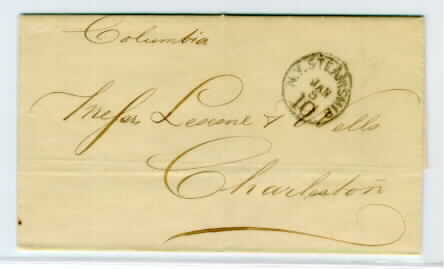 Columbia
N.Y. STEAMSHIP
JAN
5
10
Messrs Lesesne & Wells
Charleston